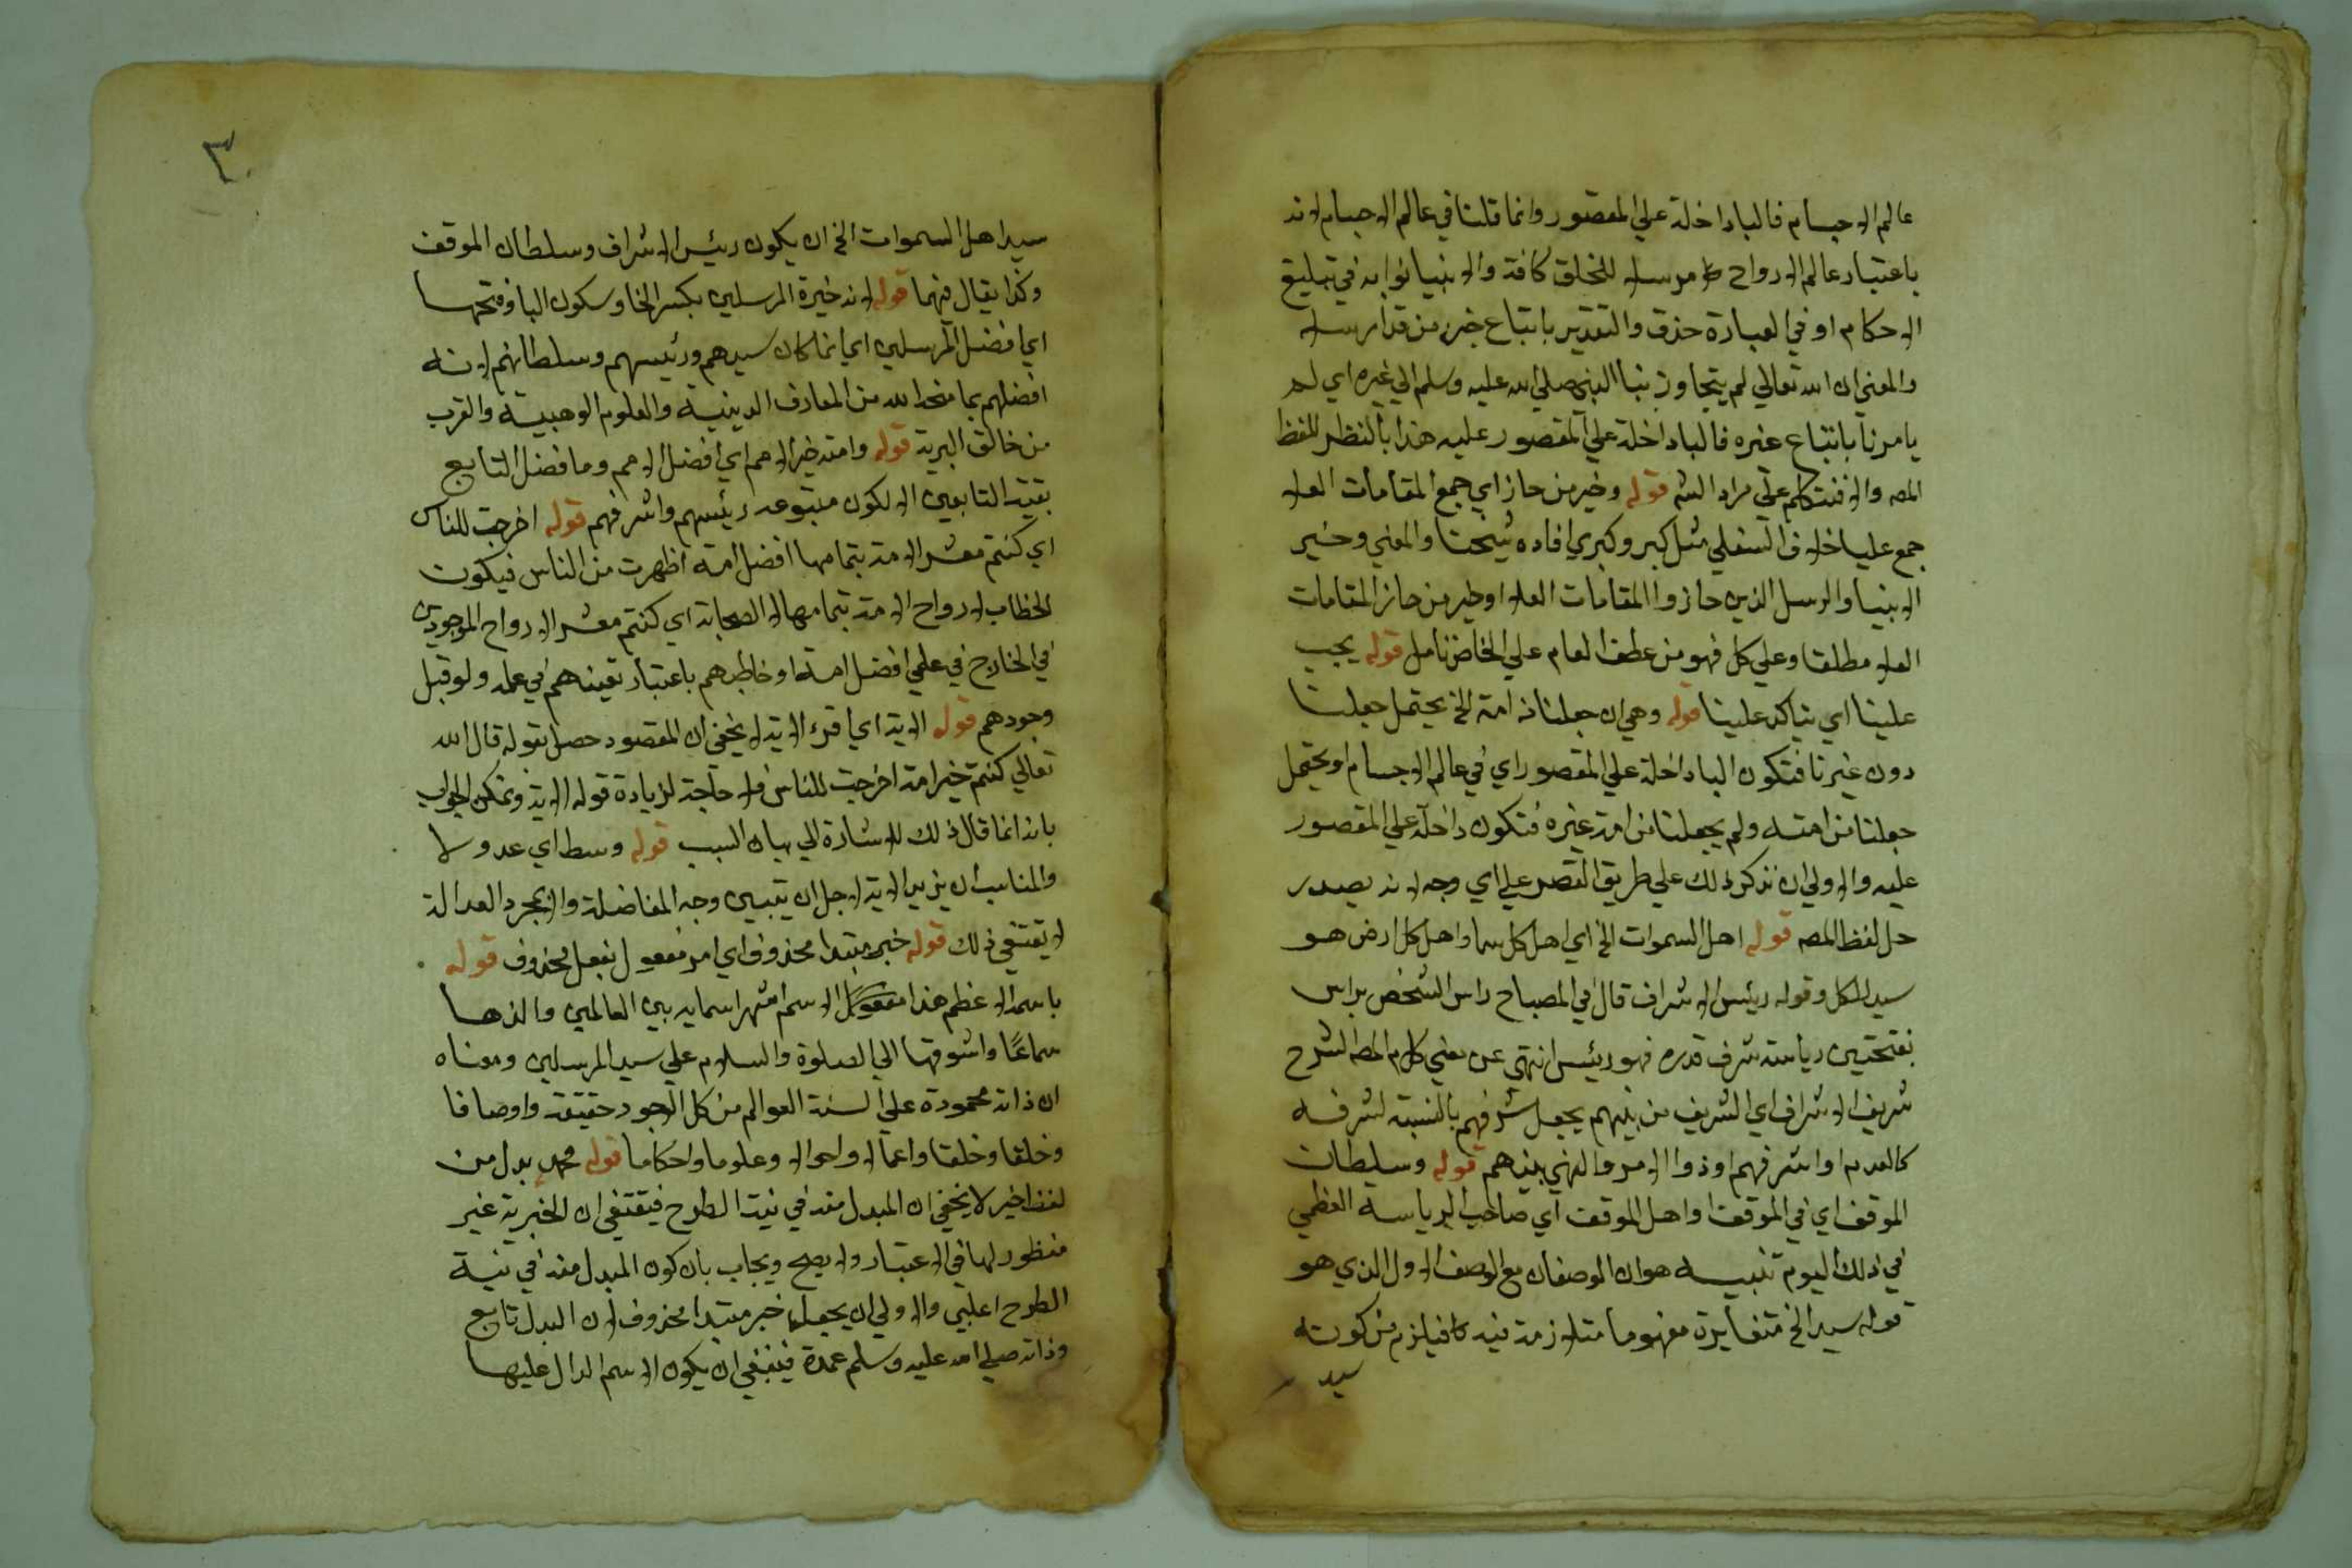 عالم الاجسام فالبا داخلة علي المقصور وانما قلنا في عالم الاجسام لانه
باعتبار عالم الارواح مرسل للخلق كافة والانبيا نوابه في تبليغ
الاحكام او في العبارة حذف والتقدير باتباع خير من قد ارسله
والمعني ان الله تعالي لم يتجاوز بنا النبي صلي الله عليه وسلم الي غيره اي لم
يامرنا باتباع غيره فالبا داخلة علي المقصور عليه هذا بالنظر للفظ
المصه والا فنتكلم علي مراد الشه قوله وخير من حاز اي جمع المقامات العلا
جمع عليا خلاف السفلي مثل كبر وكبري افاده شيخنا والمعني وخير
الانبيا والرسل الذين حازوا المقامات العلا او خير من حاز المقامات
العلا مطلقا وعلي كل فهو من عطف العام علي الخاص تامل قوله يجب
علينا اي يتاكد علينا قوله وهي ان جعلنا من امته الخ يحتمل جعلنا
دون غيرنا فتكون البا داخلة علي المقصور اي في عالم الاجسام او يحتمل
جعلنا من امته ولم يجعلنا من امة غيره فتكون داخلة علي المقصور
عليه والاولي ان نذكر ذلك علي طريق القصر علي اي وجه لانه بصدد
حل لفظ المصه قوله اهل السموات الخ اي اهل كل سما واهل كل ارض هو
سيد الكل وقوله رئيس الاشراف قال في المصباح راس الشخص يراس
بفتحتين رياسة شرف قدره فهو رئيس انتهي عن معني كلام المصه الشرح
شريف الاشراف اي الشريف من بينهم يجعل شرفهم بالنسبة لشرفه
كالعدم او اشرفهم او ذو الامر والنهي بينهم قوله وسلطان
الموقف اي في الموقف او اهل الموقف اي صاحب الرياسة العظمي
في ذلك اليوم تنبيه هو ان الوصفان مع الوصف الاول الذي هو
قوله سيد الخ متغايرة مفهوما متلازمة فيلزم من كونه
سيد
٣
سيد اهل السموات الخ ان يكون رئيس الاشراف وسلطان الموقف
وكذا يقال فيهما قوله لانه خيرة المرسلين بكسر الخا وسكون اليا وفتحها
اي افضل المرسلين اي انما كان سيدهم ورئيسهم وسلطانهم لانه
افضلهم بما منحه الله من المعارف الدينية والعلوم الوهبية والقرب
من خالق البرية قوله وامته خير الامم اي افضل الامم وما فضل التابع
بقية التابعين الا لكون متبوعه رئيسهم واشرفهم قوله اخرجت للناس
اي كنتم معشر الامة بتمامها افضل امة اظهرت من الناس فيكون
الخطاب لارواح الامة بتمامها لا الصحابة اي كنتم معشر الارواح الموجودين
في الخارج في علمي افضل امة او خاطبهم باعتبار تعينهم في علمه ولو قبل
وجودهم قوله الاية اي اقرء الاية لا يخفي ان المقصود حصل بقوله قال الله
تعالي كنتم خير امة اخرجت للناس فلا حاجة لزيادة قوله الاية ويمكن الجواب
بانه انما قال ذلك للاشارة الي بيان السبب قوله وسطا اي عدولا
والمناسب ان يزيد الاية لاجل ان يتبين وجه المفاضلة والا بمجرد العدالة
لا يقتضي ذلك قوله خبر مبتدا محذوف اي او مفعول بفعل محذوف قوله
باسمه الاعظم هذا الاسم اشهر اسمايه بين العالمين والذها
سماعًا واشوقها الي الصلوة والسلام علي سيد المرسلين ومعناه
ان ذاته محمودة علي السنة العوالم من كل الوجوه حقيقة واوصافا
وخلقا وخلقا واعمالا واحوالا وعلوما واحكاما قوله محمد بدل من
لفظ خير لا يخفي ان المبدل منه في نية الطرح فيقتضي ان الخيرية غير
منظور لها في الاعتبار ولا يصح ويجاب بان كون المبدل منه في نية
الطرح اغلبي والاولي ان يجعل خبر مبتدا محذوف لان البدل تابع
وذاته صلي الله عليه وسلم عمدة فينبغي ان يكون الاسم الدال عليها